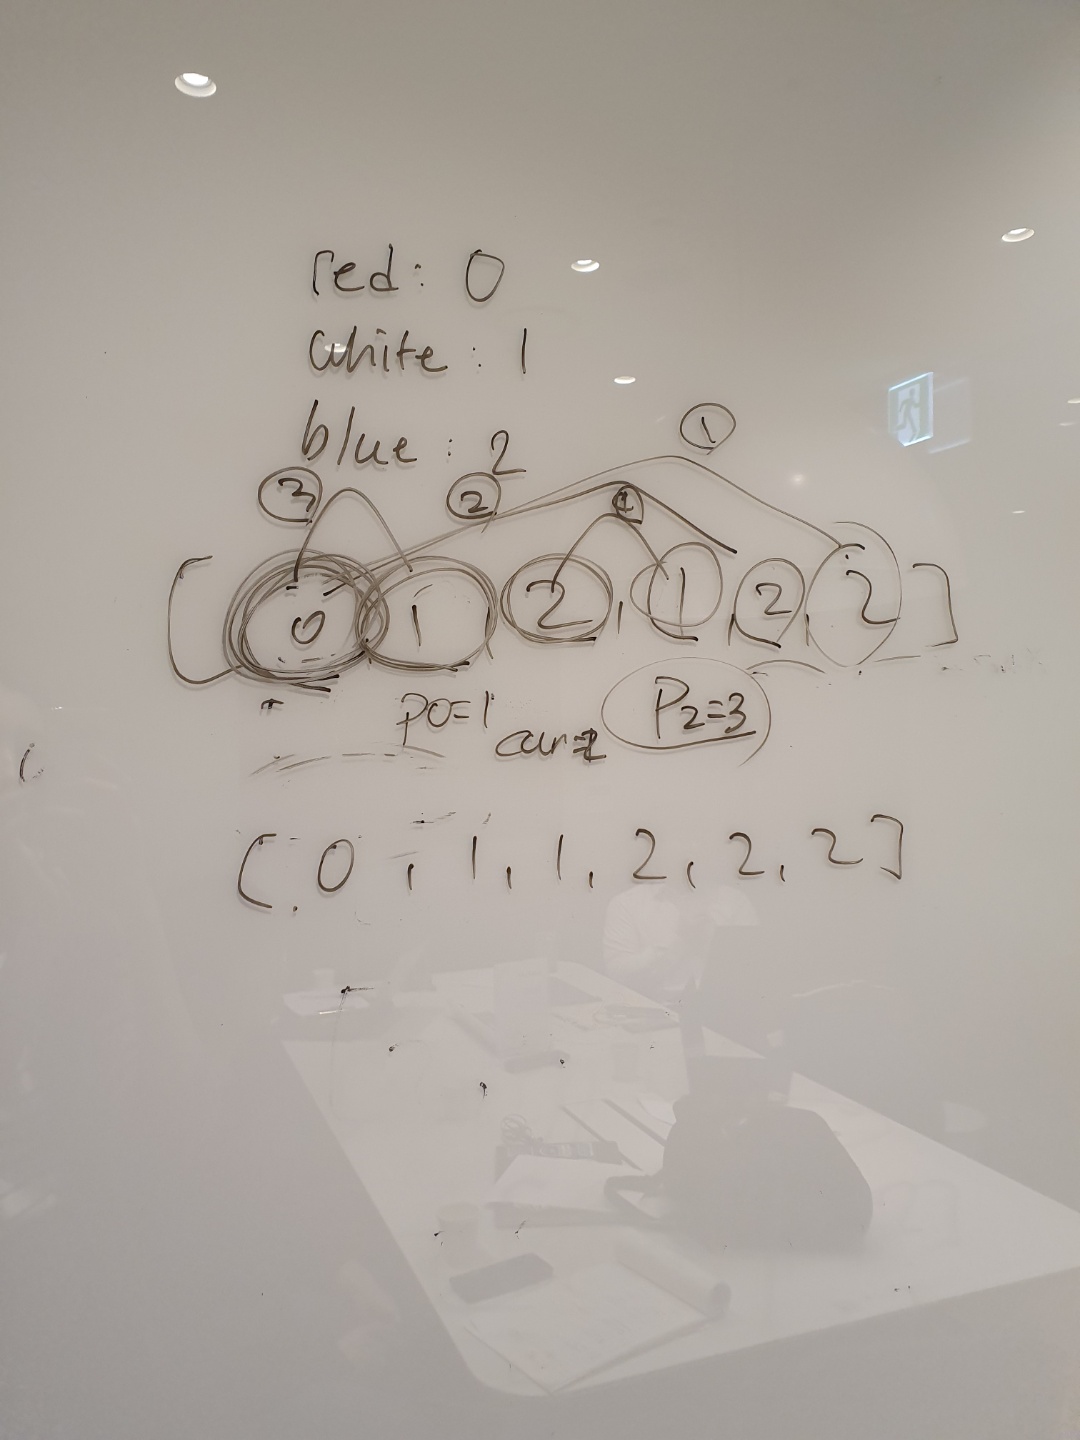 red: 0
white: 1
blue: 2
①
③ ② ④
[0, 1, 2, 1, 2, 2]
P0=1 P2=3
[0, 1, 1, 2, 2, 2]